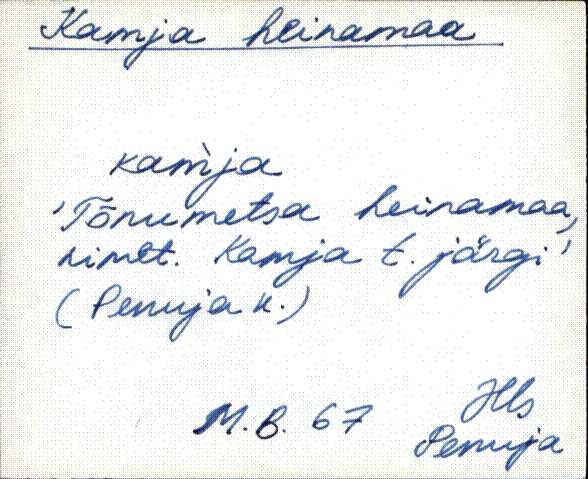 Kamja heinamaa
kam̀ja
'Tõnumetsa heinamaa,
nimet. Kamja t. järgi'
(Penuja k.)
M.B. 67
Hls
Penuja